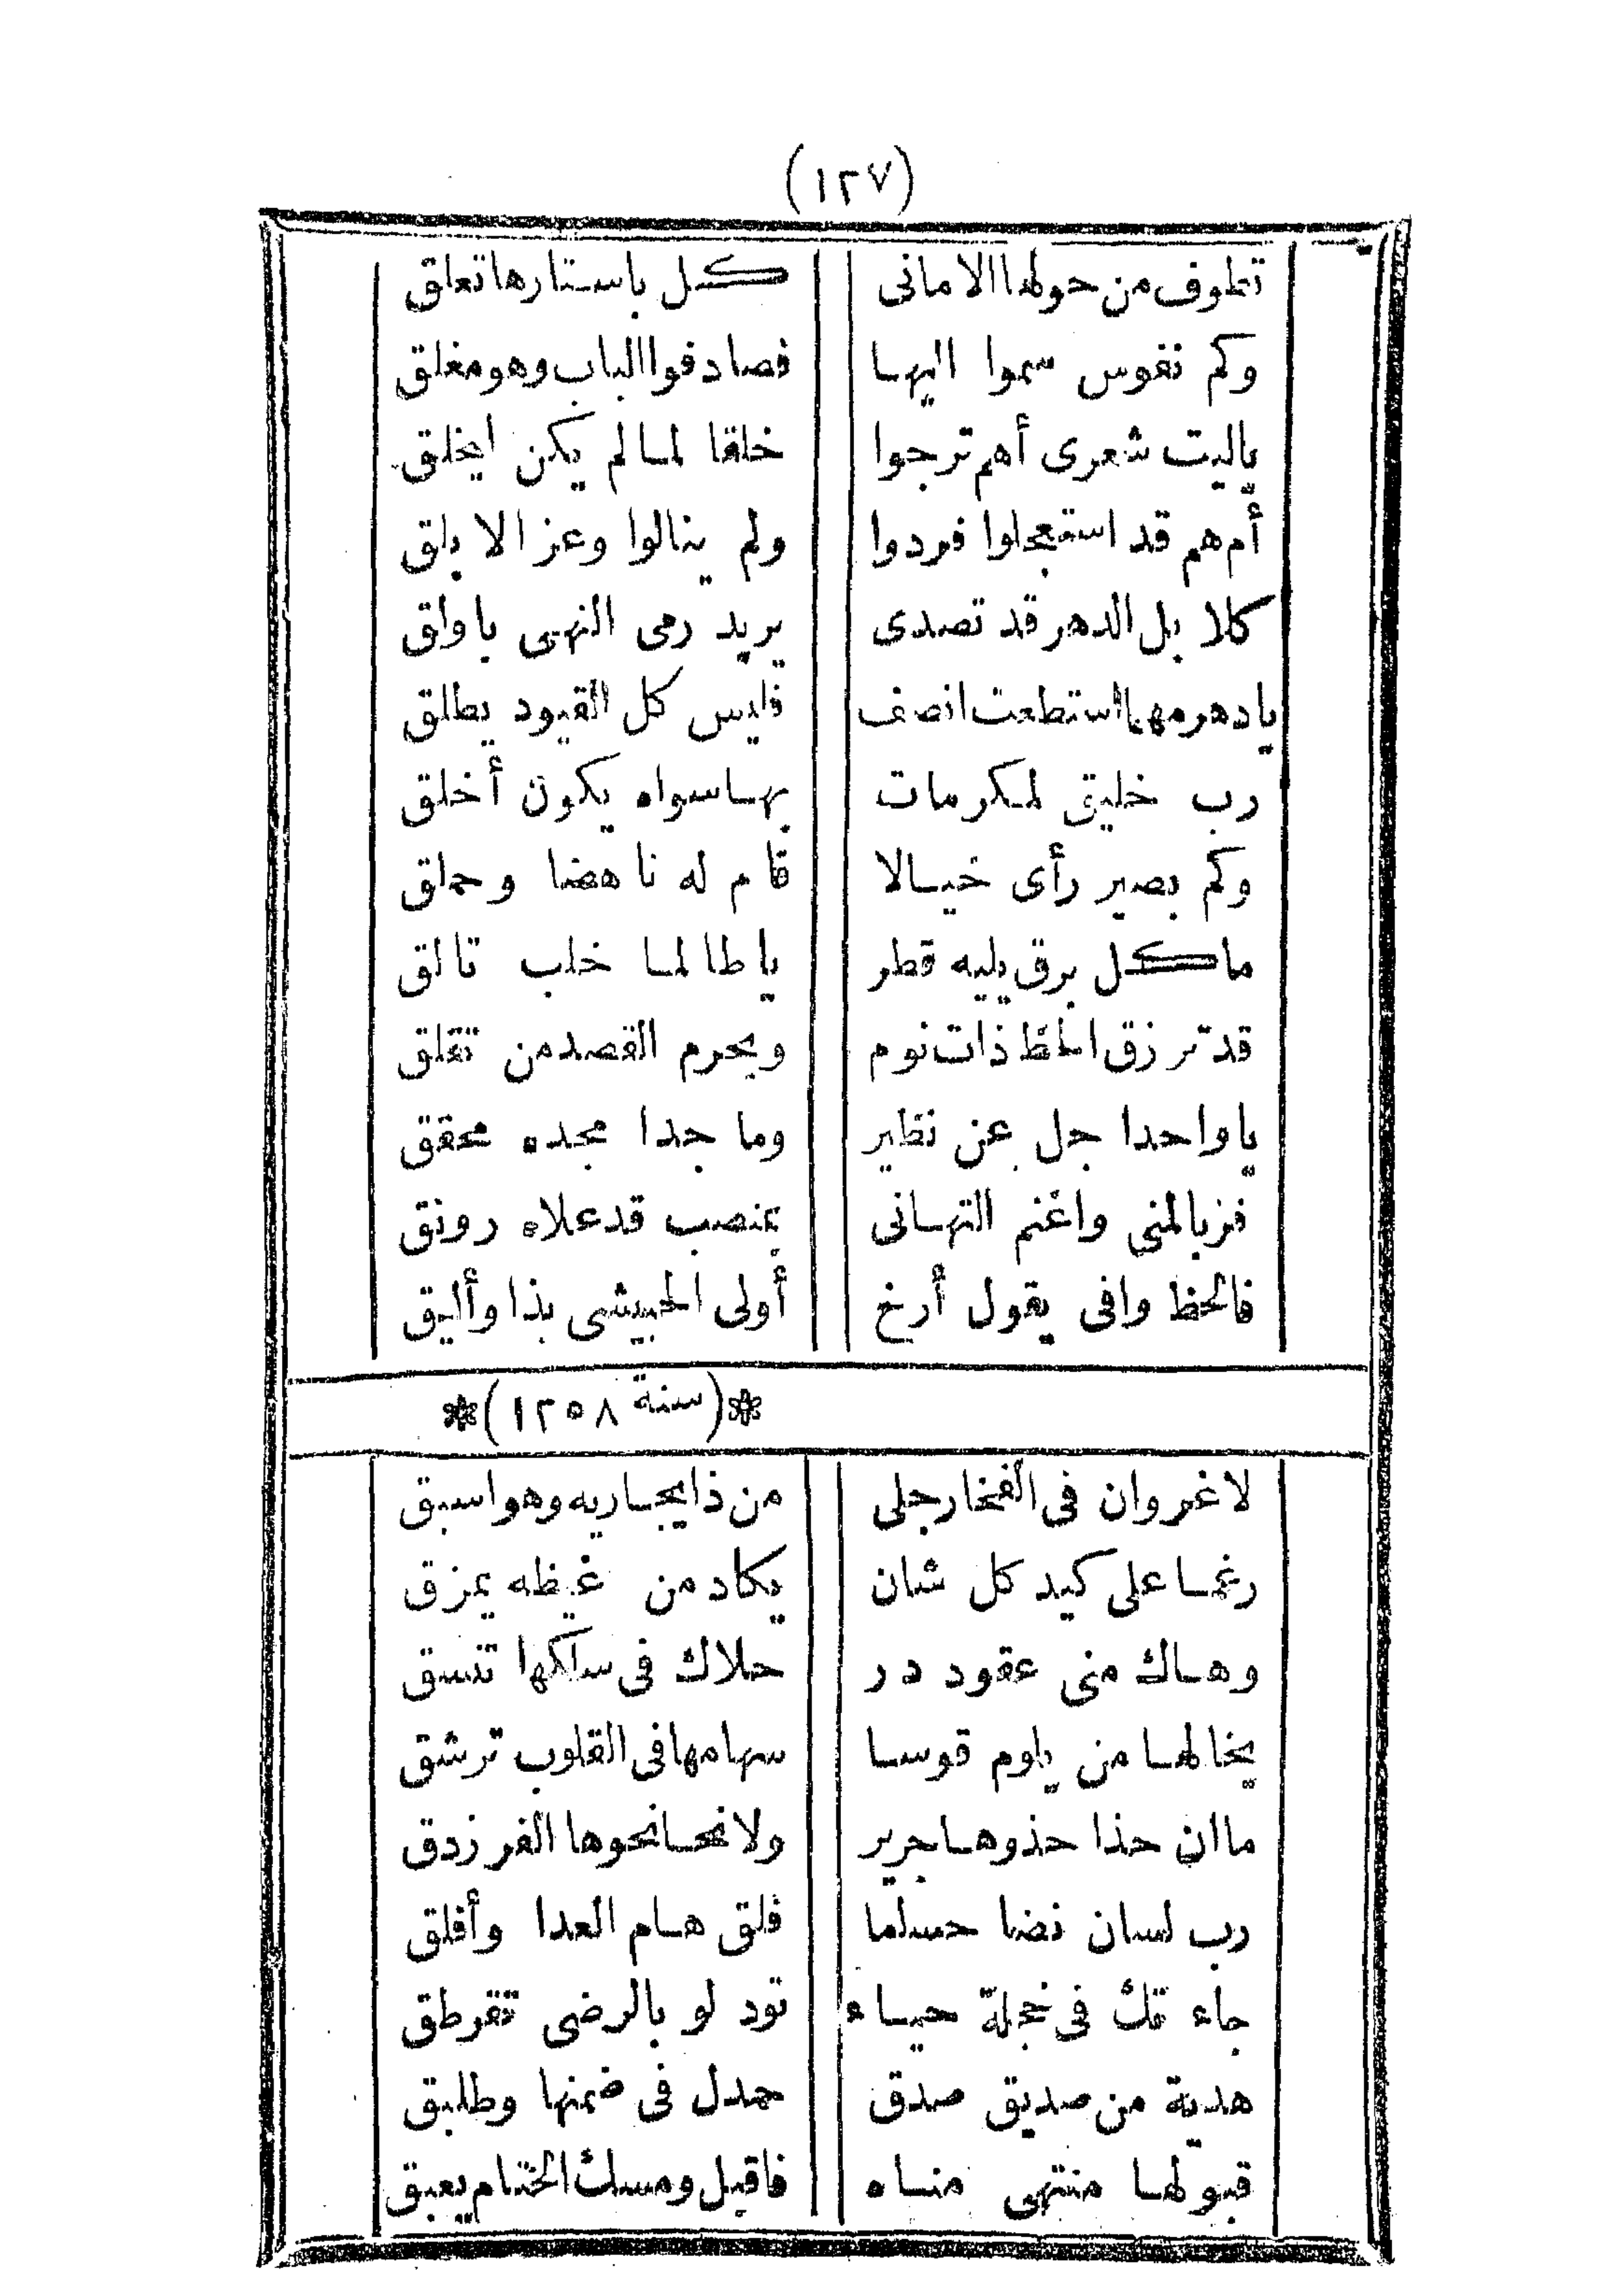 (١٢٧)
تطوف من حولها الامانى كل باستارها تعلق
وكم نفوس سموا اليها فصادفوا الباب وهو مغلق
ياليت شعرى أهم ترجوا خلقا لما لم يكن ليخلق
أم هم قد استعجلوا فردوا ولم ينالوا وعز الا يلق
كلا بل الدهر قد تصدى يريد رمى النهى باولق
يادهر مهما استطعت انصف فليس كل القيود يطلق
رب خليق لمكرمات بها سواه يكون أخلق
وكم بصير رأى خيالا قام له ناهضا وحملق
ما كل برق يليه قطر يا طالما خلب تالق
قد ترزق الحظ ذات نوم ويحرم القصد من تقلق
يا واحدا جل عن نظير وما جدا مجده محقق
فز بالمنى واغنم التهانى بمنصب قد علاه رونق
فالحظ وافى يقول أرخ أولى الحبيشى بذا وأليق
*(سنة ١٢٥٨)*
لاغروان فى الفخار جلى من ذا يجاريه وهو اسبق
رغما على كيد كل شان يكاد من غيظه يمزق
وهاك منى عقود در حلاك فى سلكها تنسق
يخالها من يلوم قوسا سهامها فى القلوب ترشق
ما ان حذا حذوها جرير ولا نحا نحوها الفرزدق
رب لسان نضا حساما فلق هام العدا وأفلق
جاءتك فى خجلة حياء تود لو بالرضى تقرطق
هدية من صديق صدق حمدل فى ضمنها وطلبق
قبولها منتهى مناه فاقبل ومسك الختام يعبق